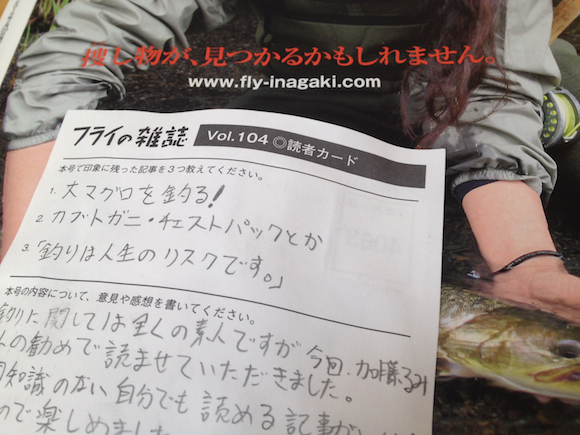 捜し物が、見つかるかもしれません。
www.fly-inagaki.com
フライの雑誌 Vol.104◎読者カード
本号で印象に残った記事を3つ教えてください。
1. 大マグロを釣る!
2. カブトガニ・チェストパックとか
3. 「釣りは人生のリスクです。」
本号の内容について、意見や感想を書いてください。
釣りに関しては全くの素人ですが 今回、加藤るみ
の勧めで読ませていただきました。
知識のない自分でも読める記事が
ので楽しめました